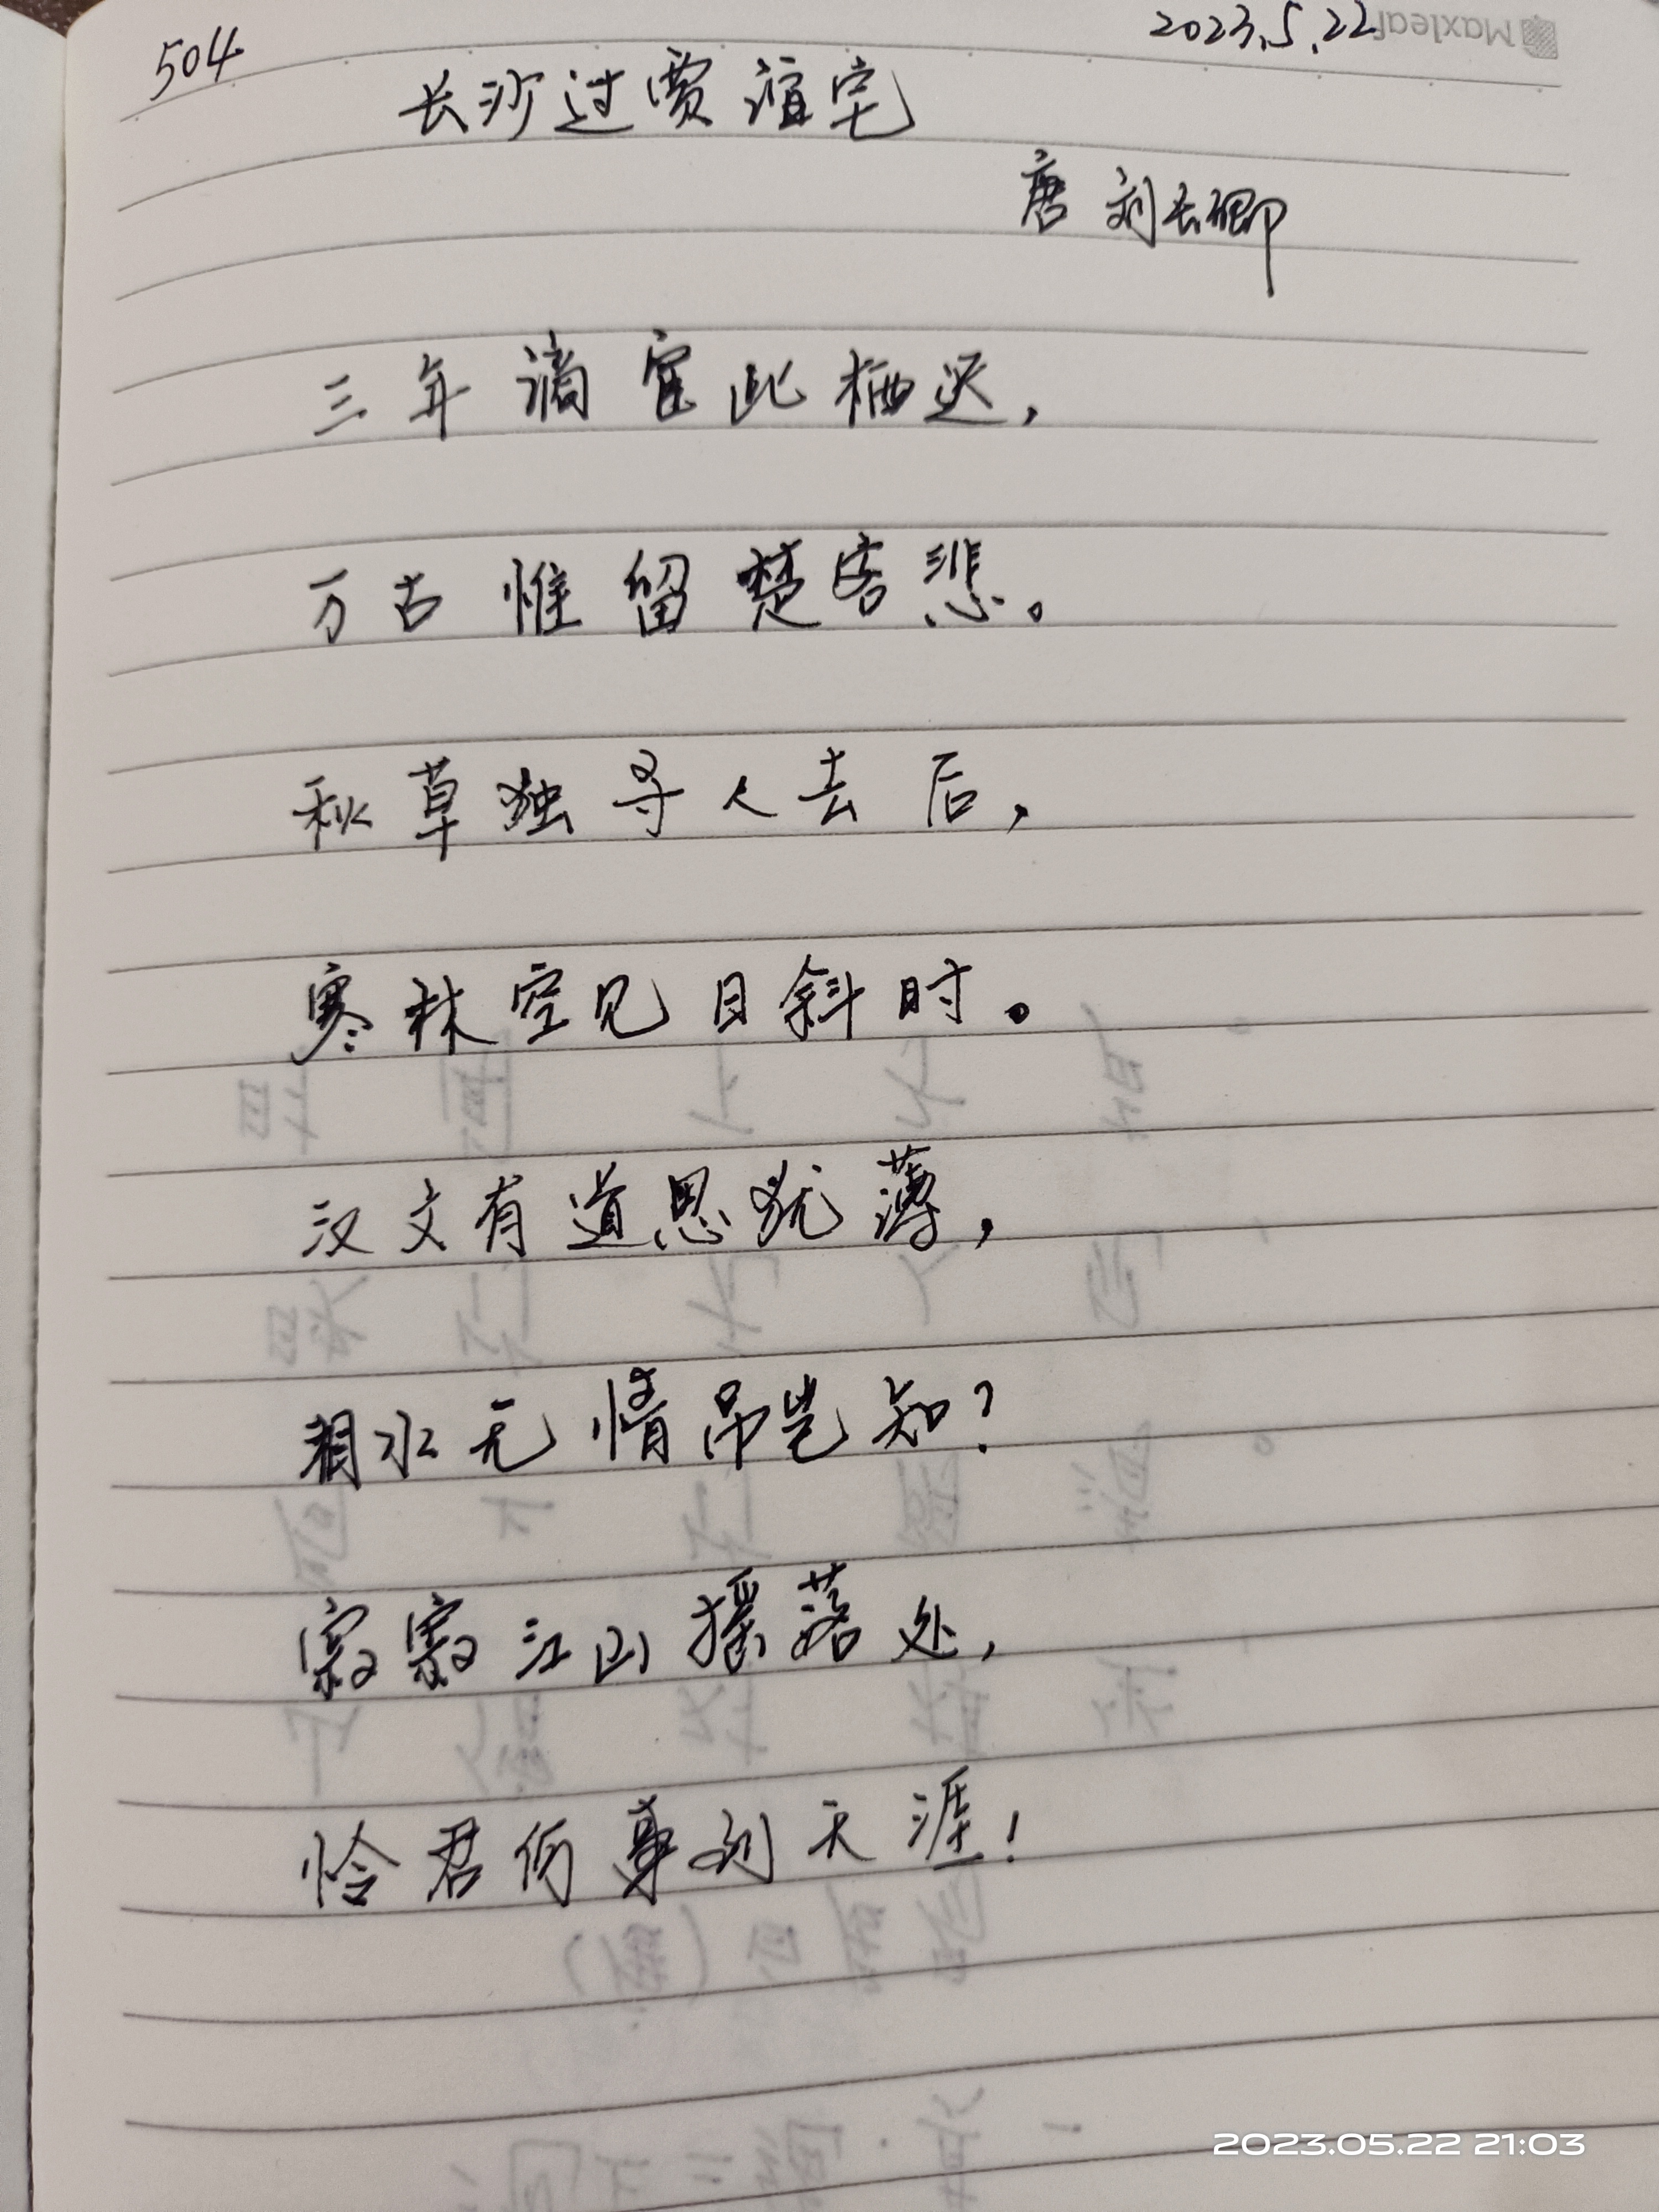 504 2023.5.22 Maxleaf
长沙过贾谊宅
唐 刘长卿
三年谪宦此栖迟，
万古惟留楚客悲。
秋草独寻人去后，
寒林空见日斜时。
汉文有道恩犹薄，
湘水无情吊岂知？
寂寂江山摇落处，
怜君何事到天涯！
2023.05.22 21:03